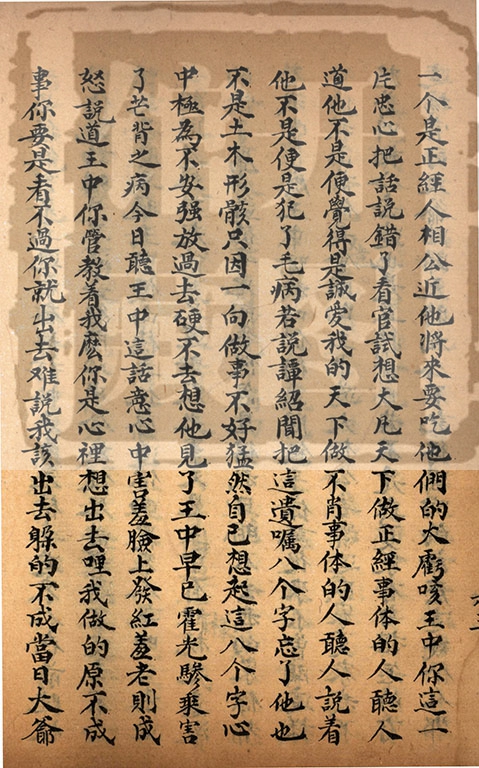 一个是正經人相公近他將來要吃他們的大虧咳王中你這一
片忠心把話說錯了看官試想大凡天下做正經事体的人聽人
道他不是便覺得是誠愛我的天下做不肖事体的人聽人說着
他不是便是犯了毛病若說譚紹聞把這遺嘱八个字忘了他也
不是土木形骸只因一向做事不好猛然自已想起這八个字心
中極為不安强放過去硬不去想他見了王中早已霍光驂乘害
了芒背之病今日聽王中這話意心中害羞臉上發紅羞老則成
怒說道王中你管教着我麽你是心裡想出去哩我做的原不成
事你要是看不過你就出去难說我該出去躲的不成當日大爺